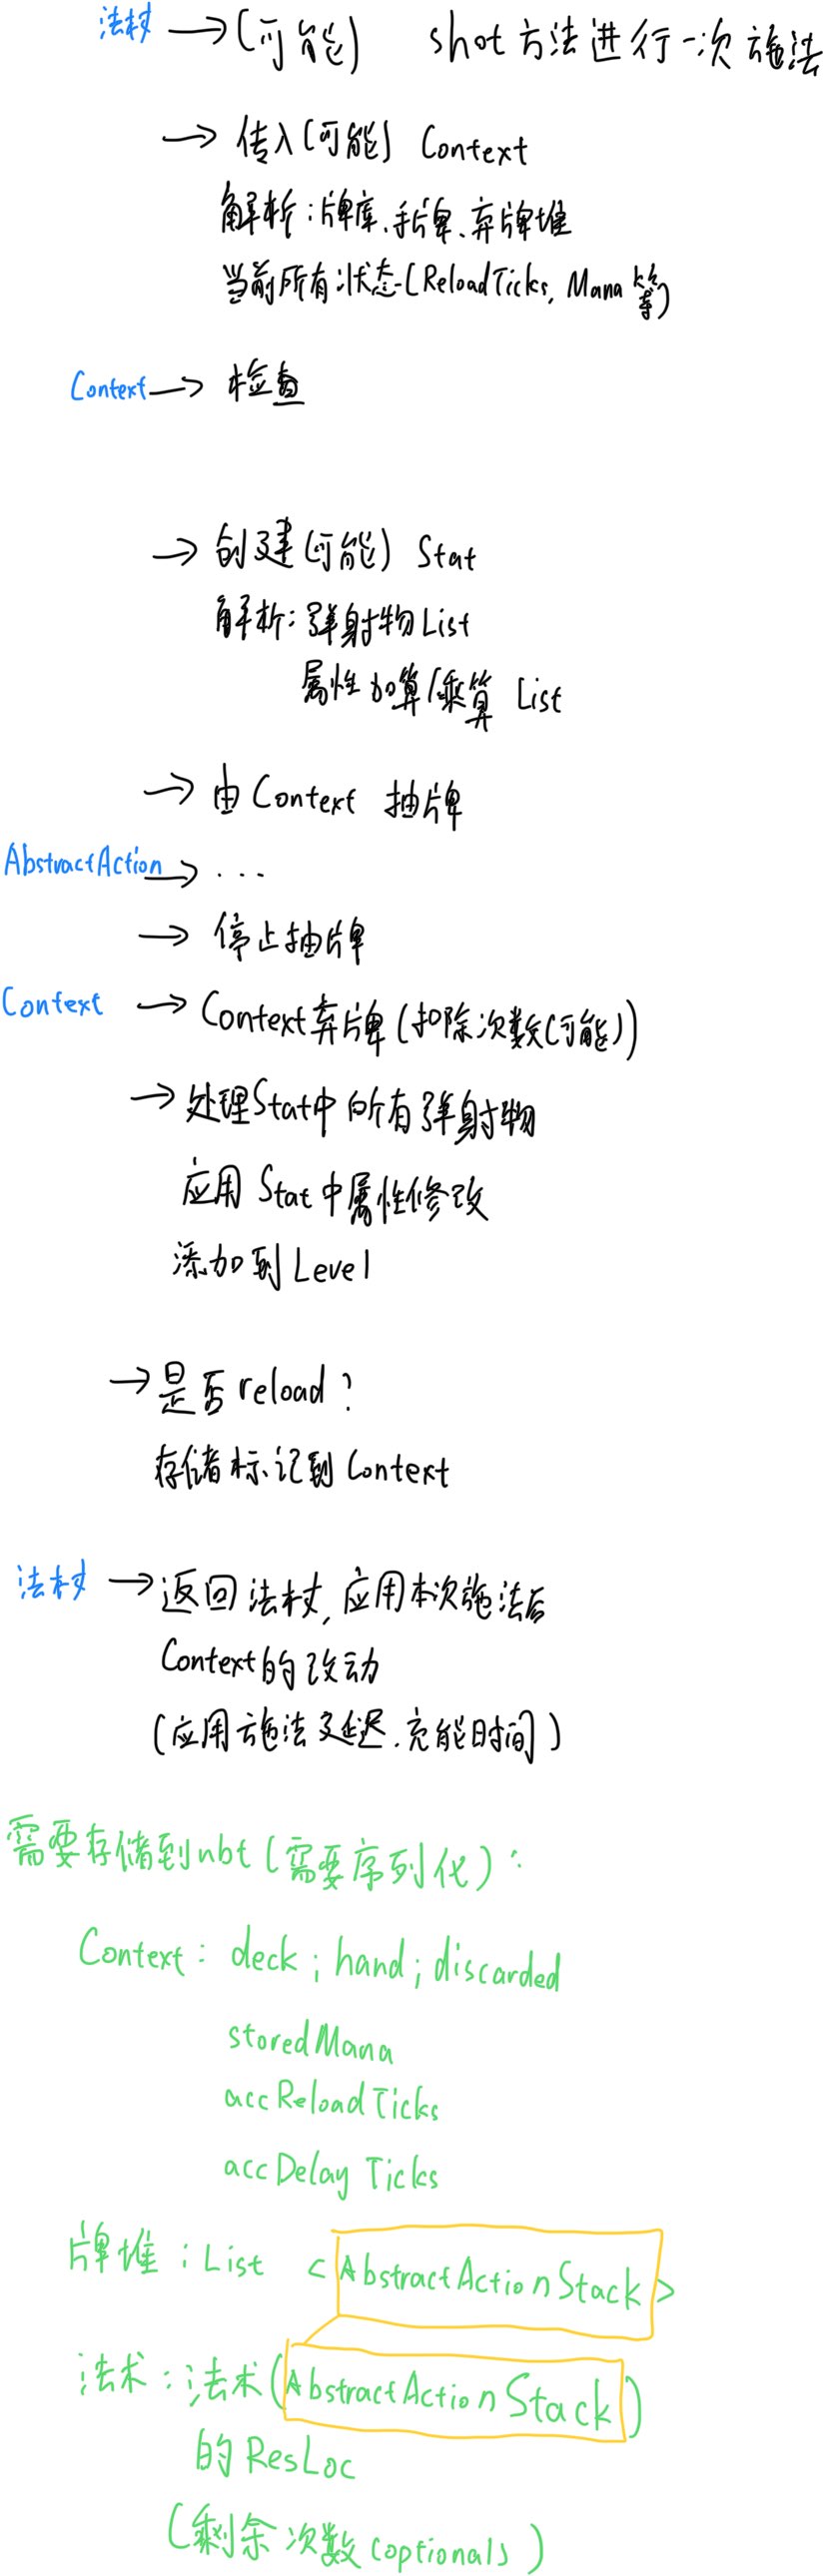 法杖 → (可能) shot方法进行一次施法
→ 传入(可能) Context
解析:牌库、手牌、弃牌堆
当前所有状态(ReloadTicks, Mana等)
Context → 检查
→ 创建(可能) Stat
解析:弹射物List
属性加算/乘算 List
→ 由Context 抽牌
AbstractAction → ...
→ 停止抽牌
Context → Context弃牌(扣除次数(可能))
→ 处理Stat中所有弹射物
应用 Stat中属性修改
添加到Level
→ 是否reload?
存储标记到Context
法杖 → 返回法杖,应用本次施法后
Context的改动
(应用施法延迟.充能时间)
需要存储到nbt(需要序列化):
Context: deck; hand; discarded
storedMana
accReloadTicks
accDelay Ticks
牌堆:List <AbstractActionStack>
法术:法术(AbstractActionStack)
的ResLoc
(剩余次数(optional))